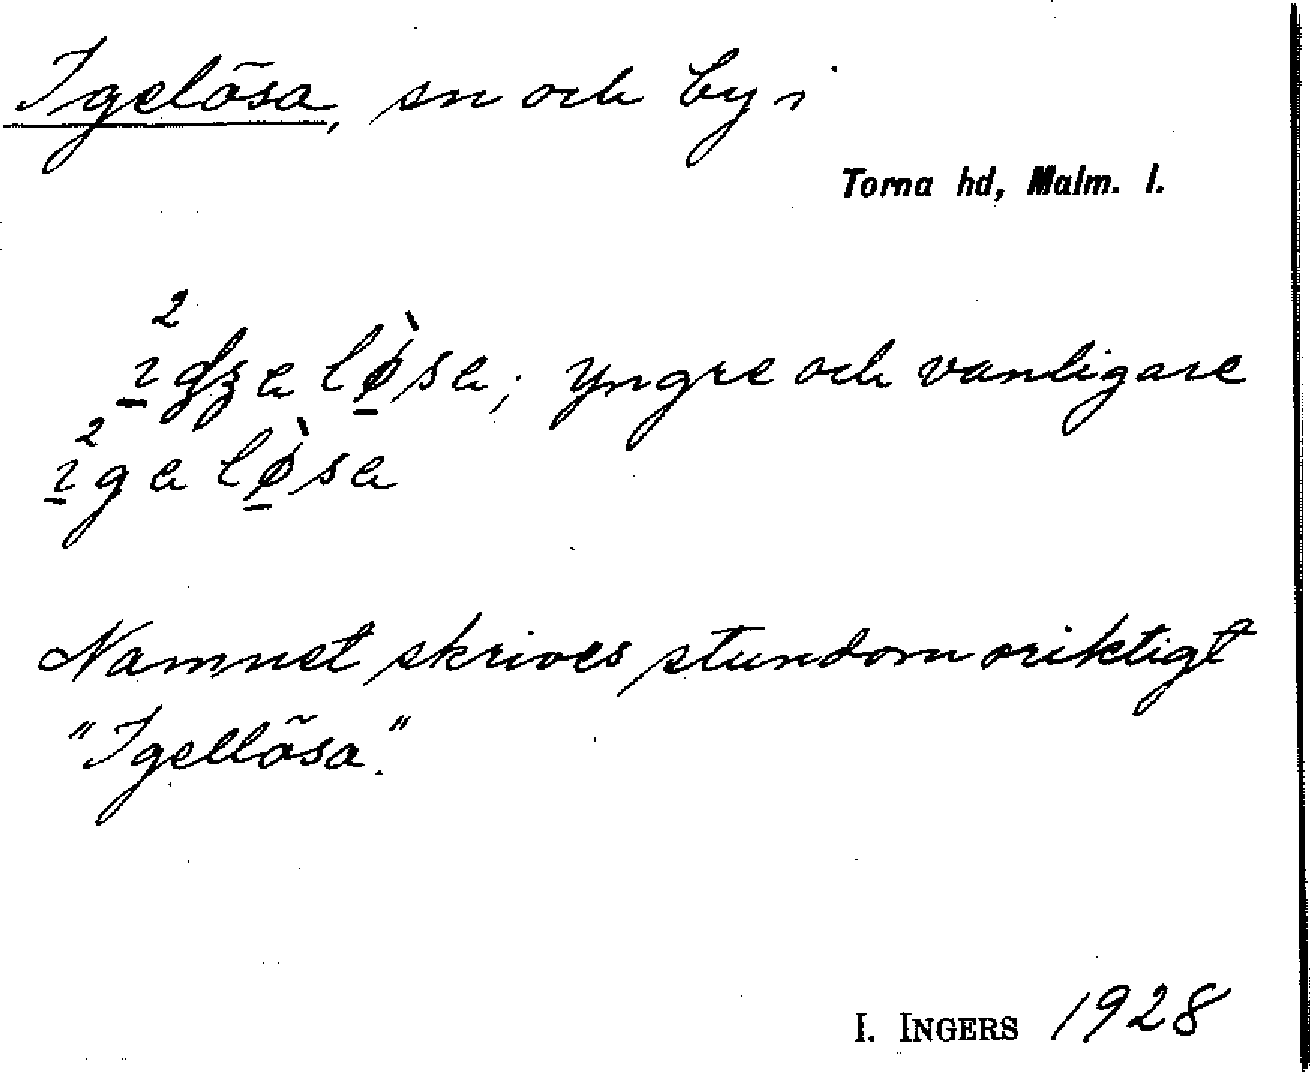 Igelösa, sn och by i
Torna hd, Malm. l.
yngre och vanligare
Namnet skrives stundom oriktigt
"Igellösa."
I. INGERS 1928